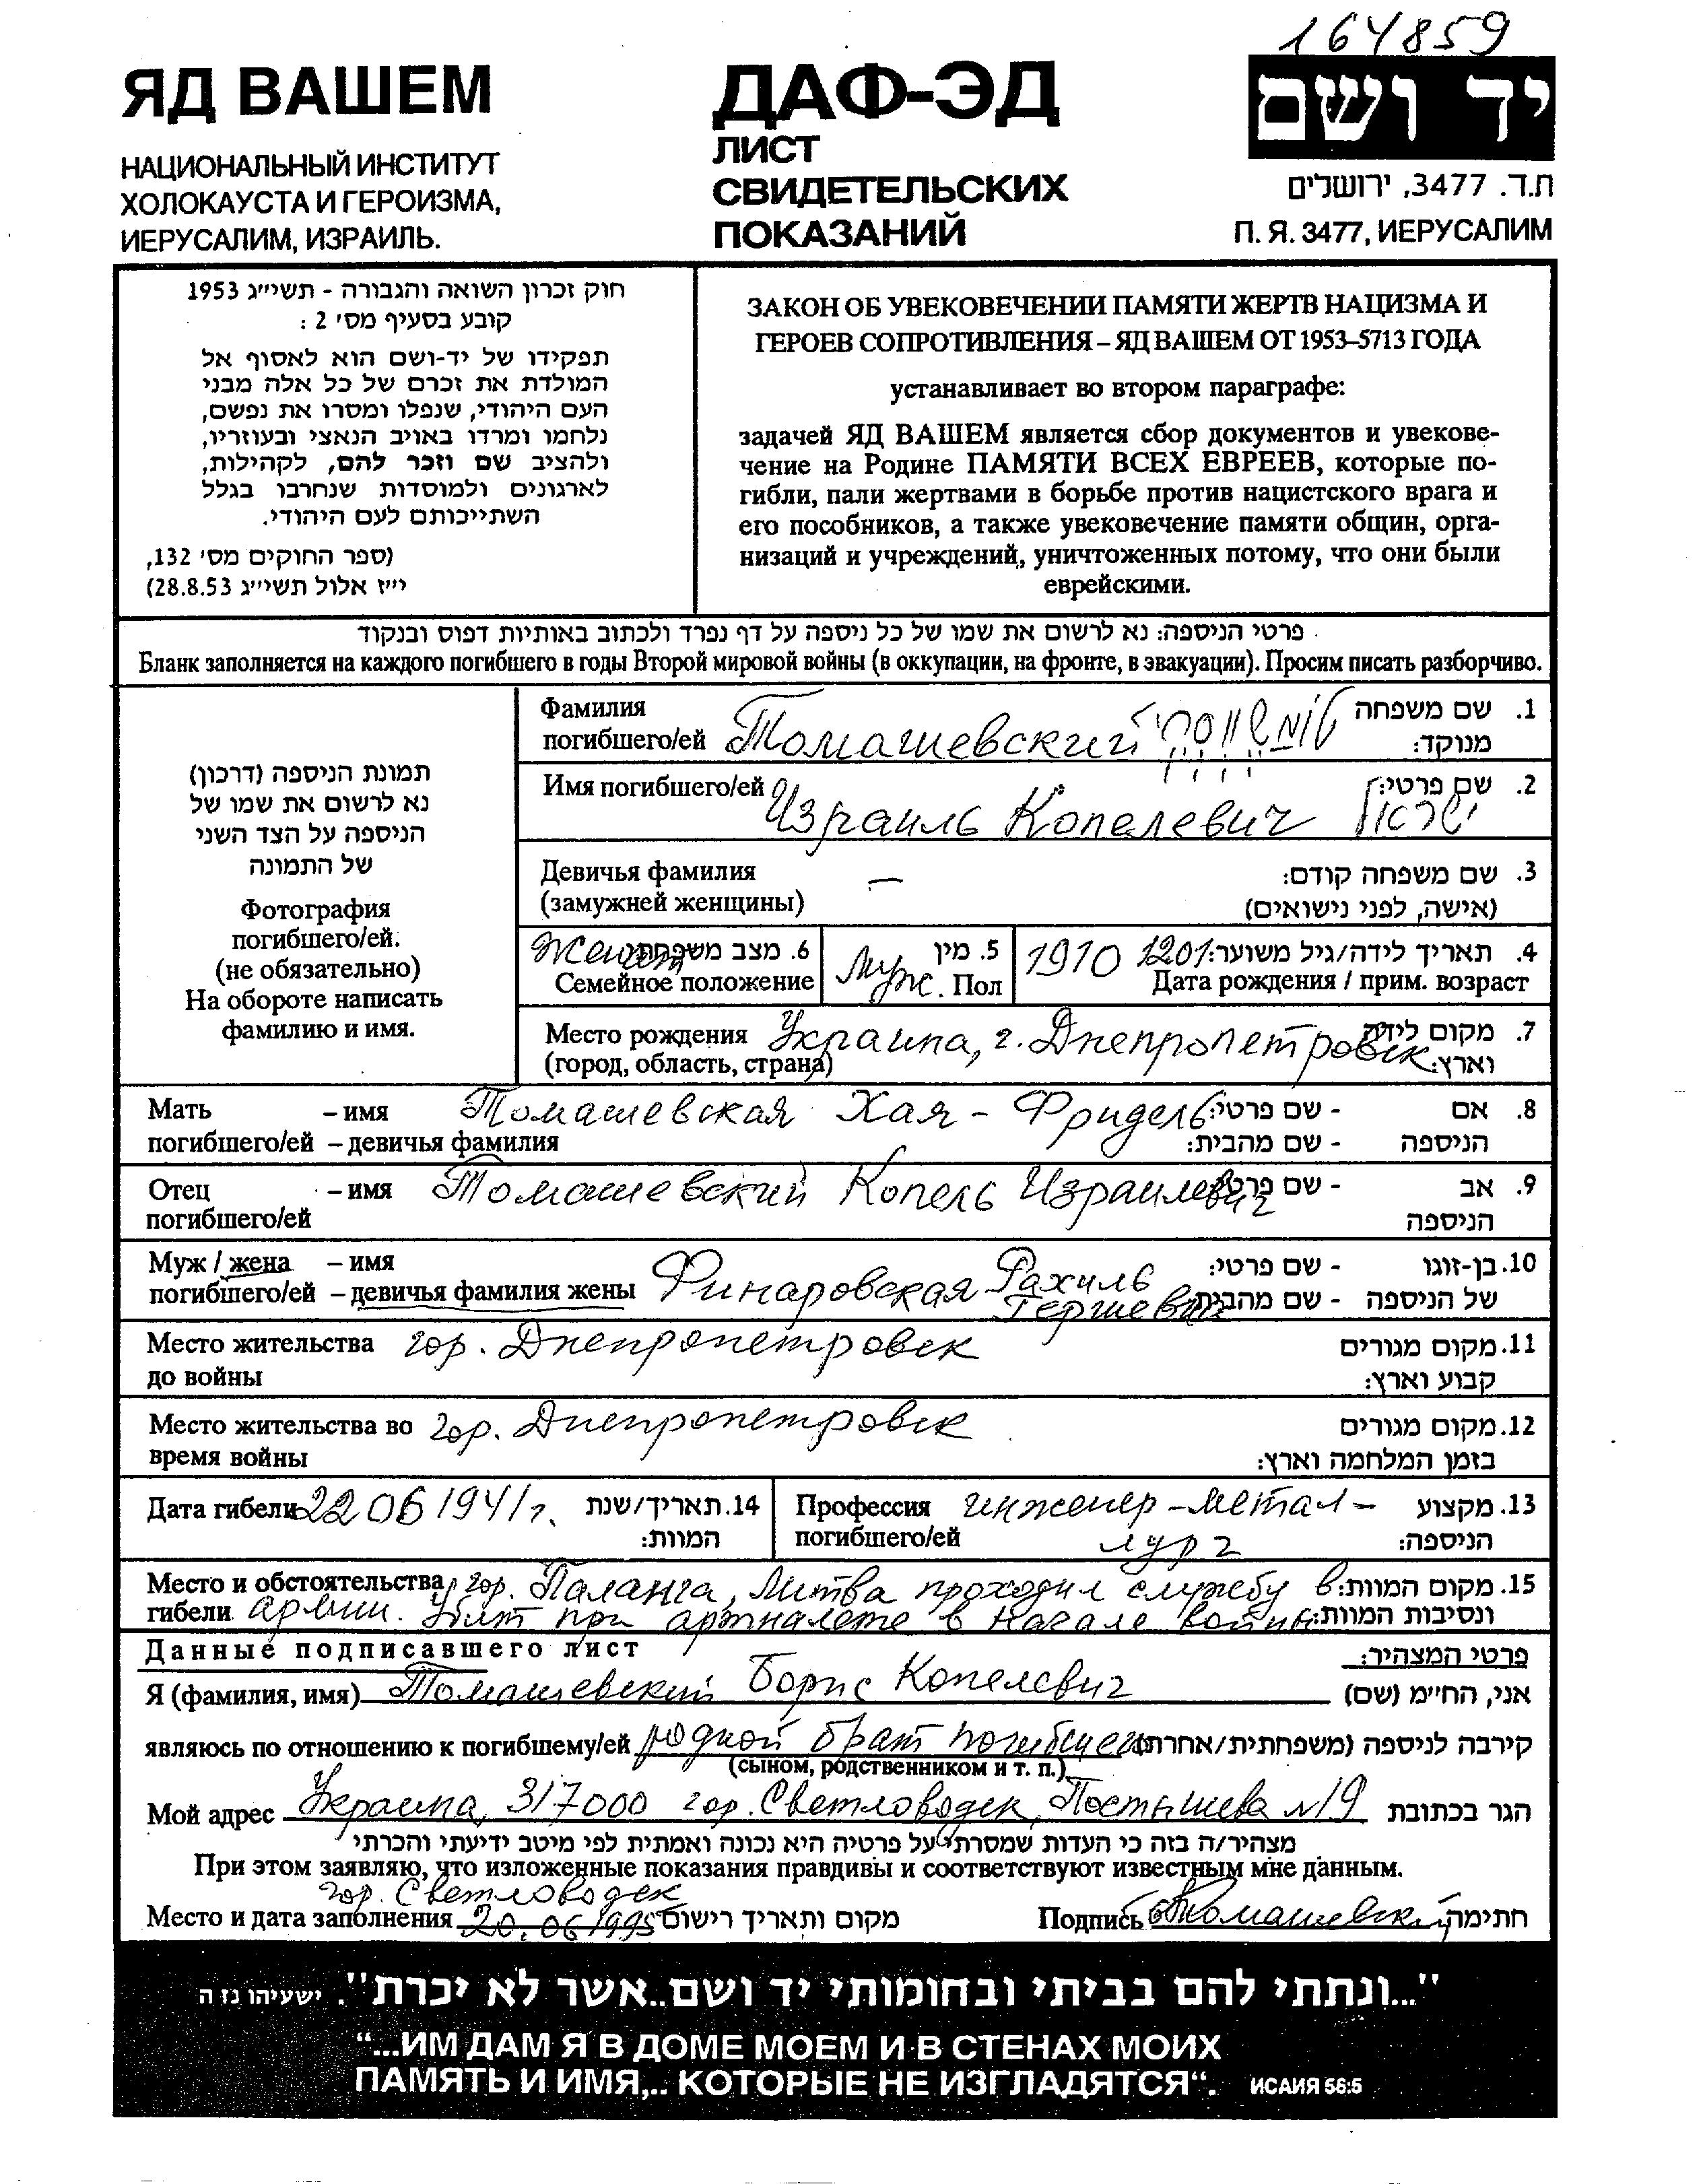 164859
ЯД ВАШЕМ
НАЦИОНАЛЬНЫЙ ИНСТИТУТ
ХОЛОКАУСТА И ГЕРОИЗМА,
ИЕРУСАЛИМ, ИЗРАИЛЬ.
ДАФ-ЭД
ЛИСТ
СВИДЕТЕЛЬСКИХ
ПОКАЗАНИЙ
יד ושם
ת.ד. 3477, ירושלים
П. Я. 3477, ИЕРУСАЛИМ
חוק זכרון השואה והגבורה - תשי״ג 1953
קובע בסעיף מס׳ 2 :
תפקידו של יד-ושם הוא לאסוף אל
המולדת את זכרם של כל אלה מבני
העם היהודי, שנפלו ומסרו את נפשם,
נלחמו ומרדו באויב הנאצי ובעוזריו,
ולהציב שם וזכר להם, לקהילות,
לארגונים ולמוסדות שנחרבו בגלל
השתייכותם לעם היהודי.
(ספר החוקים מס׳ 132,
י״ז אלול תשי״ג 28.8.53)
ЗАКОН ОБ УВЕКОВЕЧЕНИИ ПАМЯТИ ЖЕРТВ НАЦИЗМА И
ГЕРОЕВ СОПРОТИВЛЕНИЯ – ЯД ВАШЕМ ОТ 1953–5713 ГОДА
устанавливает во втором параграфе:
задачей ЯД ВАШЕМ является сбор документов и увекове-
чение на Родине ПАМЯТИ ВСЕХ ЕВРЕЕВ, которые по-
гибли, пали жертвами в борьбе против нацистского врага и
его пособников, а также увековечение памяти общин, орга-
низаций и учреждений, уничтоженных потому, что они были
еврейскими.
פרטי הניספה: נא לרשום את שמו של כל ניספה על דף נפרד ולכתוב באותיות דפוס ובנקוד
Бланк заполняется на каждого погибшего в годы Второй мировой войны (в оккупации, на фронте, в эвакуации). Просим писать разборчиво.
תמונת הניספה (דרכון)
נא לרשום את שמו של
הניספה על הצד השני
של התמונה
Фотография
погибшего/ей.
(не обязательно)
На обороте написать
фамилию и имя.
Фамилия 1. שם משפחה
погибшего/ей Томашевский מנוקד:
Имя погибшего/ей 2. שם פרטי:
Израиль Копелевич ישראל
Девичья фамилия — 3. שם משפחה קודם:
(замужней женщины) (אישה, לפני נישואים)
Женат 6. מצב משפחתי
Семейное положение
5. מין
Муж. Пол
1910 1201 4. תאריך לידה/גיל משוער:
Дата рождения / прим. возраст
Место рождения Украина, г. Днепропетровск 7. מקום לידה
(город, область, страна) וארץ:
Мать – имя Томашевская Хая - Фридель - שם פרטי: 8. אם
погибшего/ей – девичья фамилия - שם מהבית: הניספה
Отец – имя Томашевский Копель Израилевич - שם פרטי: 9. אב
погибшего/ей הניספה
Муж / жена – имя Финаровская Рахиль - שם פרטי: 10. בן-זוגו
погибшего/ей – девичья фамилия жены - שם מהבית: של הניספה
Место жительства гор. Днепропетровск 11. מקום מגורים
до войны קבוע וארץ:
Место жительства во гор. Днепропетровск 12. מקום מגורים
время войны בזמן המלחמה וארץ:
Дата гибели 22 06 1941 г. 14. תאריך/שנת
המוות:
Профессия инженер - метал- 13. מקצוע
погибшего/ей лург הניספה:
Место и обстоятельства гор. Паланга, Литва проходил службу в 15. מקום המוות:
гибели армии. Убит при артналете в начале войны ונסיבות המוות:
Данные подписавшего лист פרטי המצהיר:
Я (фамилия, имя) Томашевский Борис Копелевич אני, הח״מ (שם)
являюсь по отношению к погибшему/ей родной брат קירבה לניספה (משפחתית/אחרת)
(сыном, родственником и т. п.)
Мой адрес Украина, 317000 гор. Светловодск, Постышева N19 הגר בכתובת
מצהיר/ה בזה כי העדות שמסרתי על פרטיה היא נכונה ואמתית לפי מיטב ידיעתי והכרתי
При этом заявляю, что изложенные показания правдивы и соответствуют известным мне данным.
гор. Светловодск
Место и дата заполнения 20. 06 1995 מקום ותאריך רישום Подпись Томашевский חתימה
"...ונתתי להם בביתי ובחומותי יד ושם..אשר לא יכרת". ישעיהו נז ה
“...ИМ ДАМ Я В ДОМЕ МОЕМ И В СТЕНАХ МОИХ
ПАМЯТЬ И ИМЯ,.. КОТОРЫЕ НЕ ИЗГЛАДЯТСЯ“. ИСАИЯ 56:5